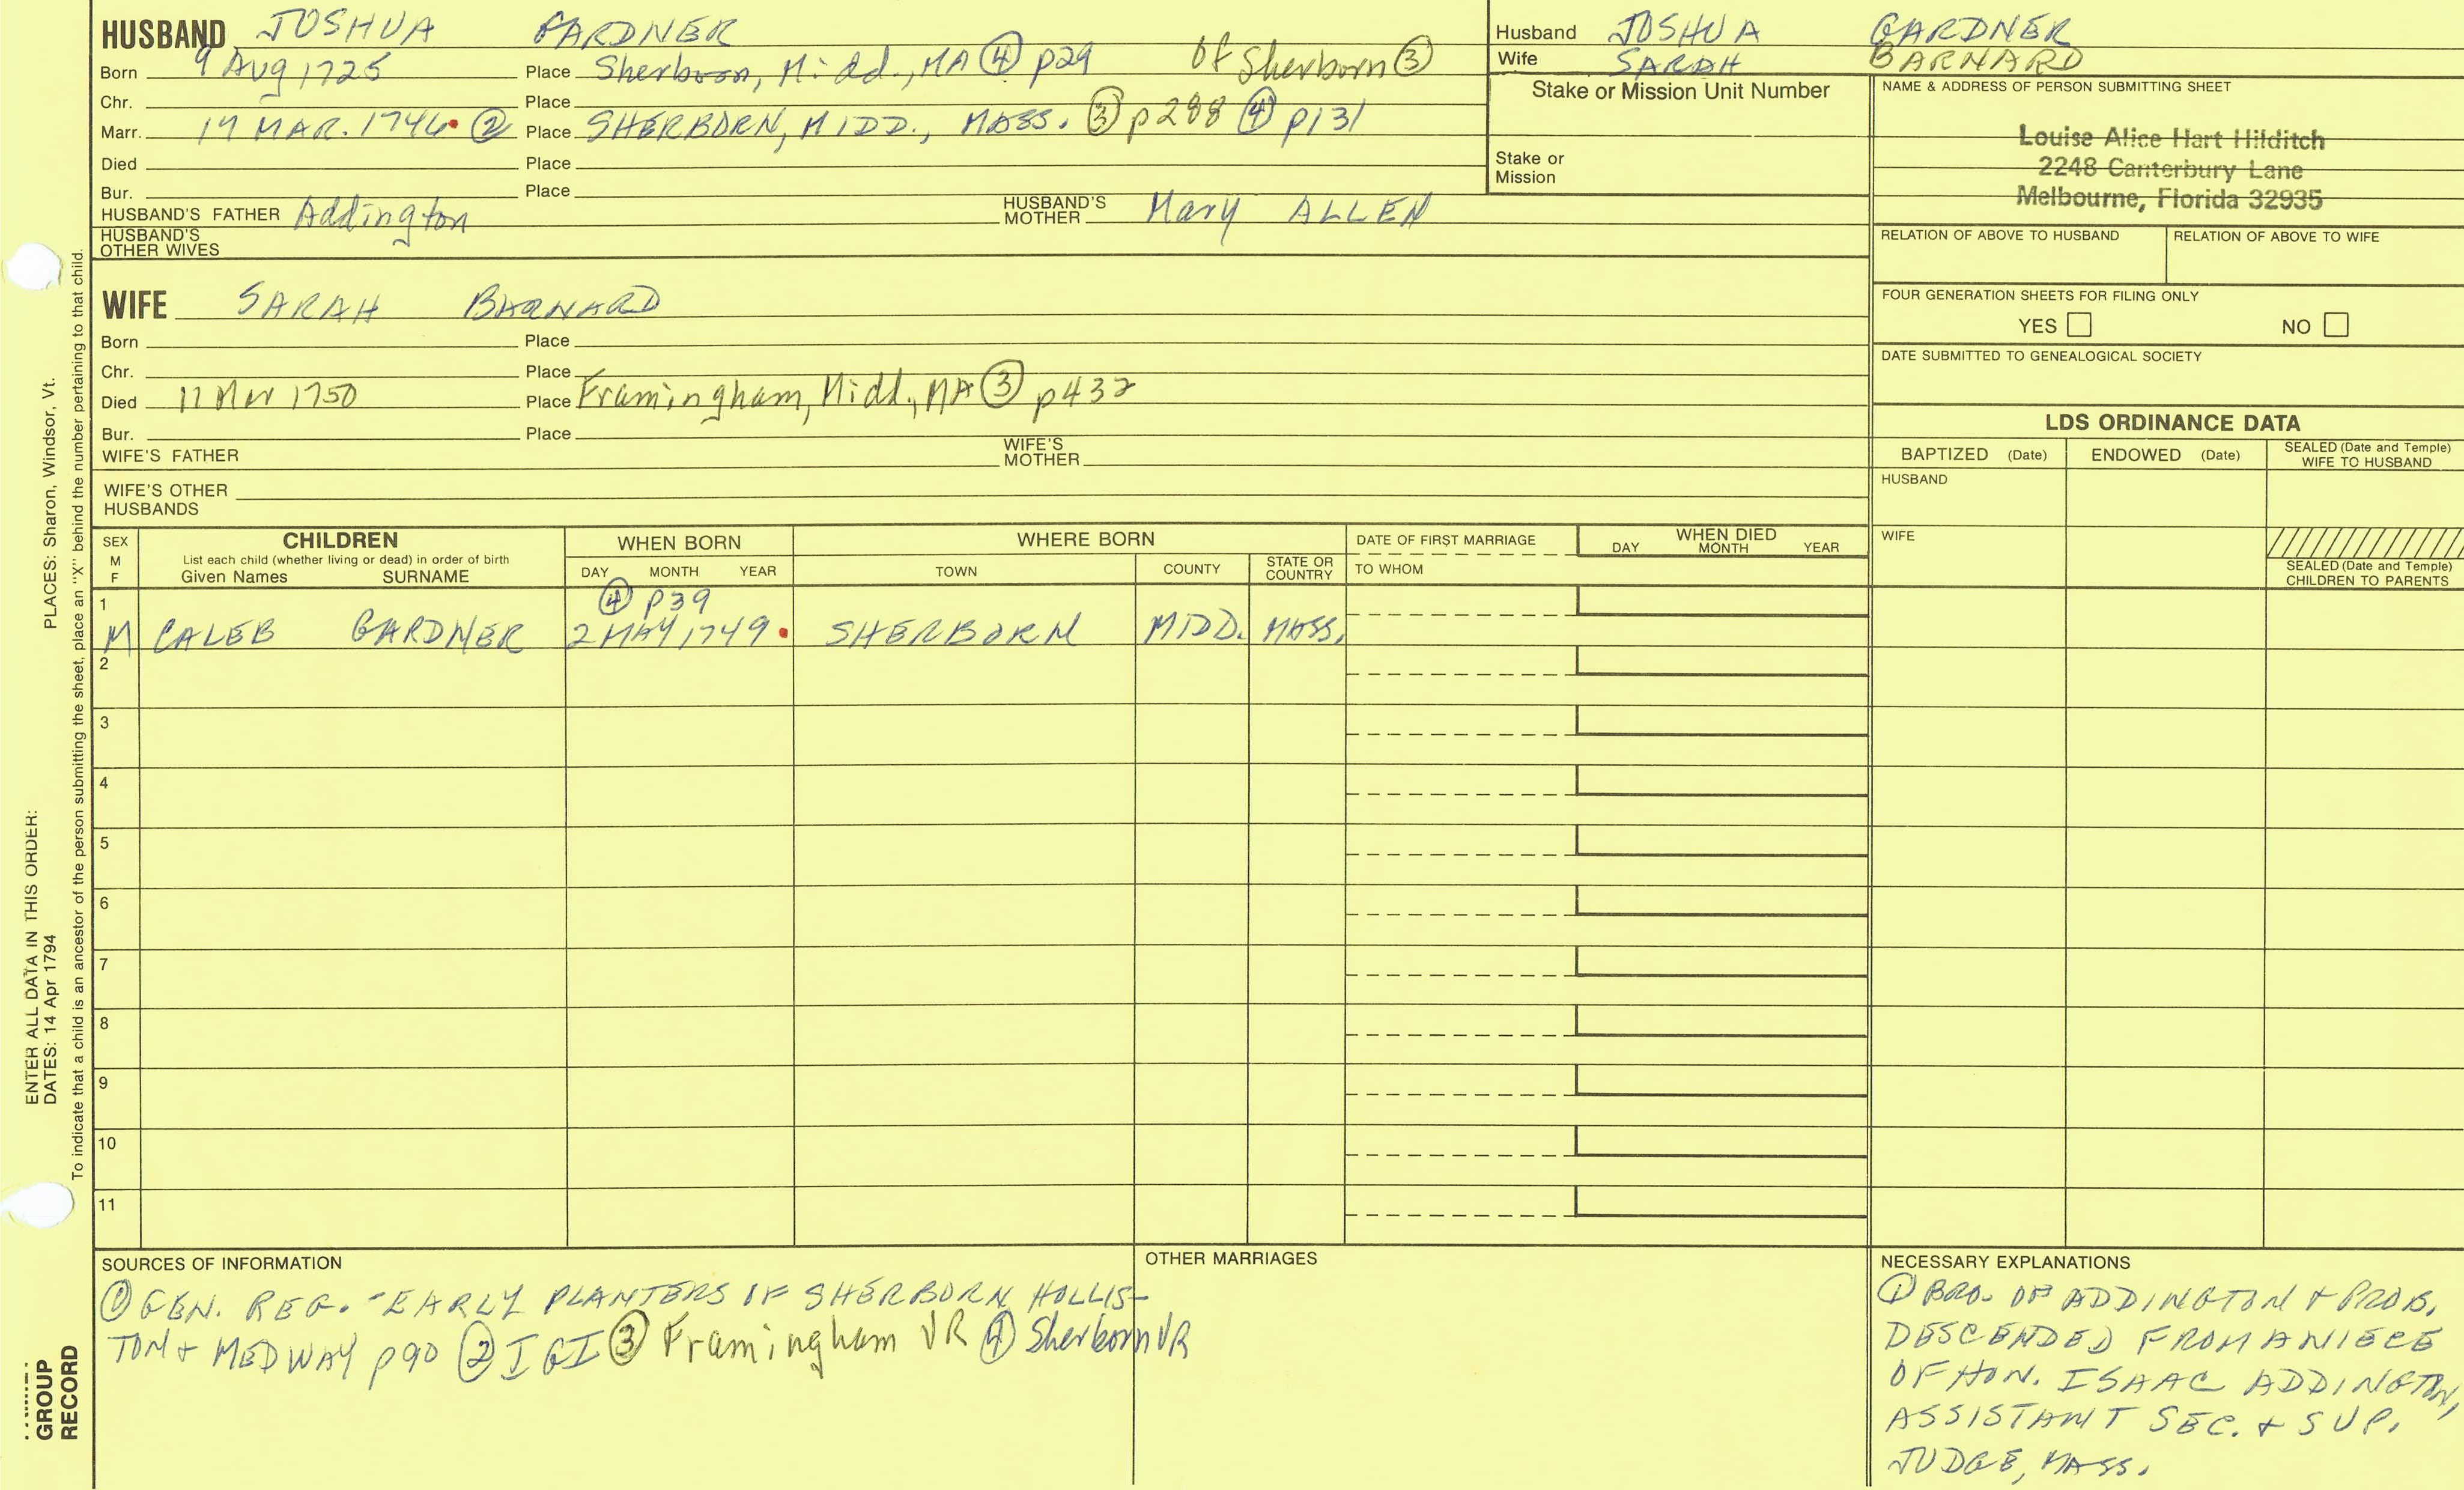 HUSBAND JOSHUA GARDNER
Born 9 Aug 1725 Place Sherborn, Midd., MA ④ p29 Of Sherborn ③
Chr. Place
Marr. 19 MAR. 1746 ② Place SHERBORN, MIDD., MASS. ③ p288 ④ p131
Died Place
Bur. Place
HUSBAND'S FATHER Addington HUSBAND'S MOTHER Mary ALLEN
HUSBAND'S OTHER WIVES
WIFE SARAH BARNARD
Born Place
Chr. Place
Died 11 Mar 1750 Place Framingham, Midd., MA ③ p432
Bur. Place
WIFE'S FATHER WIFE'S MOTHER
WIFE'S OTHER HUSBANDS
Husband JOSHUA GARDNER
Wife SARAH BARNARD
Stake or Mission Unit Number
Stake or Mission
NAME & ADDRESS OF PERSON SUBMITTING SHEET
Louise Alice Hart Hilditch
2248 Canterbury Lane
Melbourne, Florida 32935
RELATION OF ABOVE TO HUSBAND RELATION OF ABOVE TO WIFE
FOUR GENERATION SHEETS FOR FILING ONLY
YES NO
DATE SUBMITTED TO GENEALOGICAL SOCIETY
LDS ORDINANCE DATA
BAPTIZED (Date) ENDOWED (Date) SEALED (Date and Temple) WIFE TO HUSBAND
HUSBAND
WIFE
SEALED (Date and Temple) CHILDREN TO PARENTS
SEX M F CHILDREN WHEN BORN WHERE BORN DATE OF FIRST MARRIAGE WHEN DIED
List each child (whether living or dead) in order of birth
Given Names SURNAME DAY MONTH YEAR TOWN COUNTY STATE OR COUNTRY TO WHOM DAY MONTH YEAR
1 ④ p39
M CALEB GARDNER 2 MAY 1749 SHERBORN MIDD. MASS.
2
3
4
5
6
7
8
9
10
11
SOURCES OF INFORMATION
① GEN. REG. - EARLY PLANTERS OF SHERBORN, HOLLIS-
TON & MEDWAY p90 ② IGI ③ Framingham VR ④ Sherborn VR
OTHER MARRIAGES
NECESSARY EXPLANATIONS
① BRO. OF ADDINGTON & PROB.
DESCENDED FROM A NIECE
OF HON. ISAAC ADDINGTON,
ASSISTANT SEC. & SUP.
JUDGE, MASS.
ENTER ALL DATA IN THIS ORDER:
DATES: 14 Apr 1794 PLACES: Sharon, Windsor, Vt.
To indicate that a child is an ancestor of the person submitting the sheet, place an "X" behind the number pertaining to that child.
GROUP
RECORD